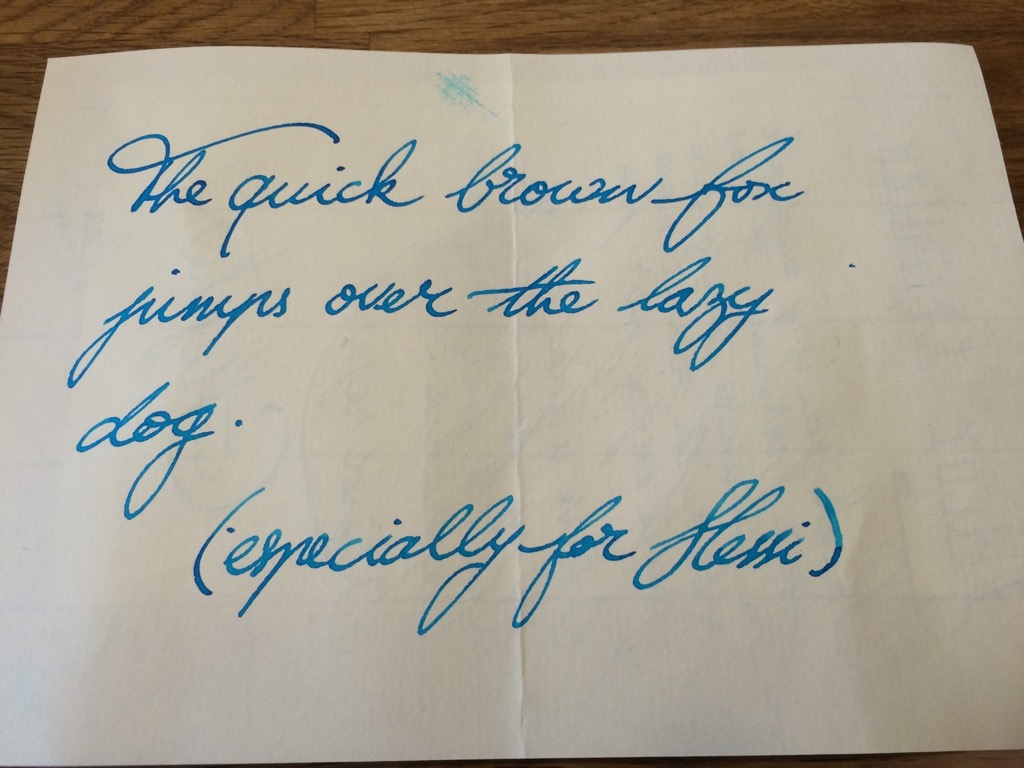 The quick brown fox
jumps over the lazy
dog.
(especially for